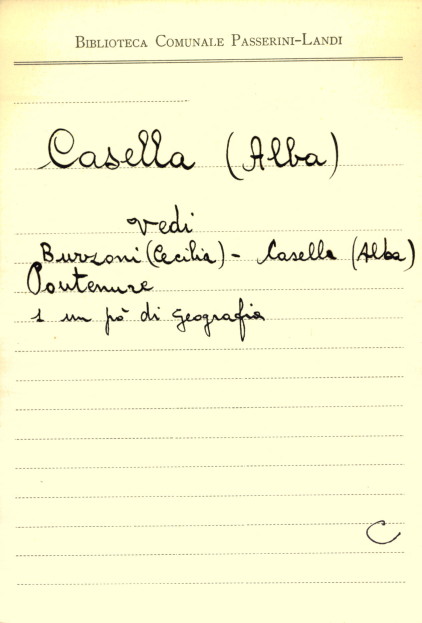 BIBLIOTECA COMUNALE PASSERINI-LANDI
Casella (Alba)
vedi
Burzoni (Cecilia) - Casella (Alba)
Pontenure
1 un pò di geografia
C